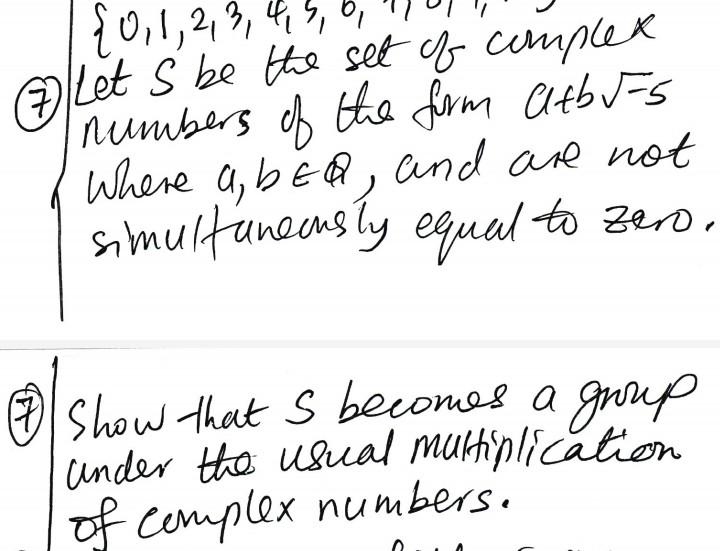 {0,1,2,3,4,5,6,
⑦ Let S be the set of complex
numbers of the form a+b√-5
where a, b ∈ Q, and are not
simultaneously equal to zero.
⑦ Show that S becomes a group
under the usual multiplication
of complex numbers.